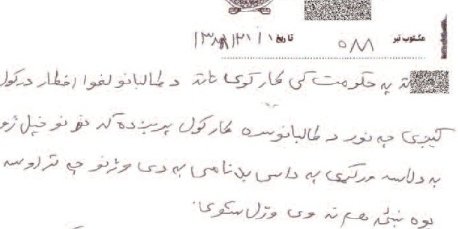 مکتوب نبر ۵۸۸ تاریخ ۱۳۸۸/۱۲/۱
ته په حکومت کی کار کوی تاته د طالبانو لخوا اخطار درکول
کیږی چه نور د طالبانو سره کار کول پریږده که نه نو خپل ژو
به دلاسه ورکړی په داسی بدنامی به دی وژنو چه تر اوسه
یوه ښځه هم نه وی وژل شوی.